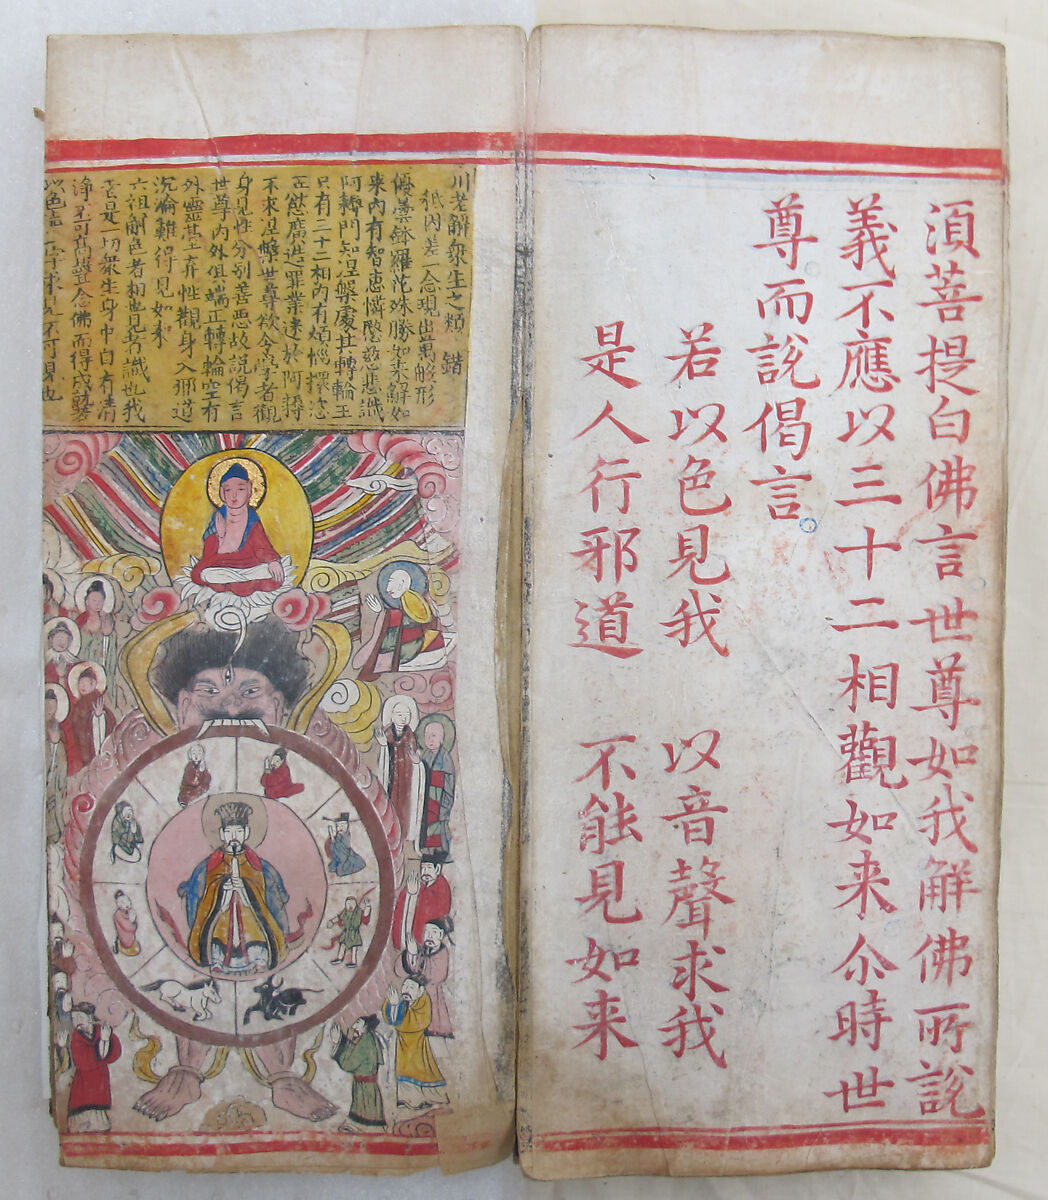 湏菩提白佛言世尊如我解佛所說
義不應以三十二相觀如来尒時世
尊而說偈言
若以色見我 以音聲求我
是人行邪道 不能見如来
川老解衆生之類 錯
秖因差一念現出萬般形
優曇鉢羅花殊勝如来解如
来內有智恵憐慜慈悲
阿轉門知涅槃處其轉輪王
只有三十二相內有煩惱
廣造罪業迷於阿耨
不求涅槃世尊欲令學者觀
身見性分别善惡故說偈言
世尊內外俱端正轉輪空有
外靈甚至弃性觀身入邪道
沉淪難得見如来
六祖解色者相也見者識也我
者是一切衆生身中自有清
淨高聲念佛而得成就
以色